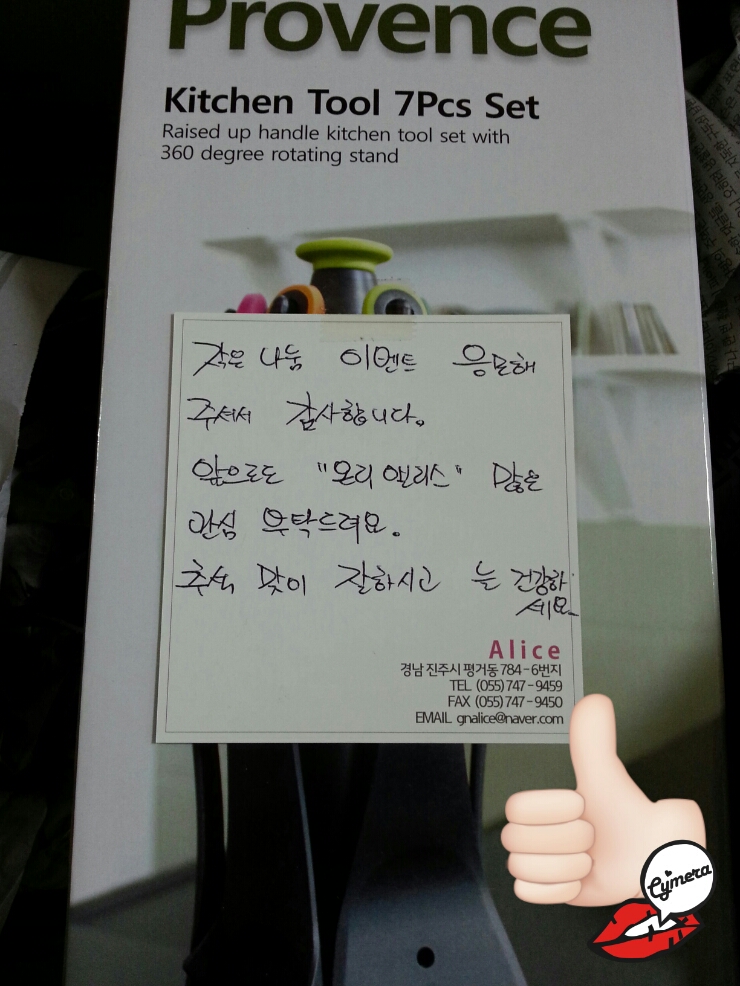 Provence
Kitchen Tool 7Pcs Set
Raised up handle kitchen tool set with
360 degree rotating stand
작은 나눔 이벤트 응모해
주셔서 감사합니다.
앞으로도 "오리앨리스" 많은
관심 부탁드려요.
추석 맞이 잘하시고 늘 건강하
세요
Alice
경남 진주시 평거동 784-6번지
TEL (055)747-9459
FAX (055)747-9450
EMAIL gnalice@naver.com
Cymera